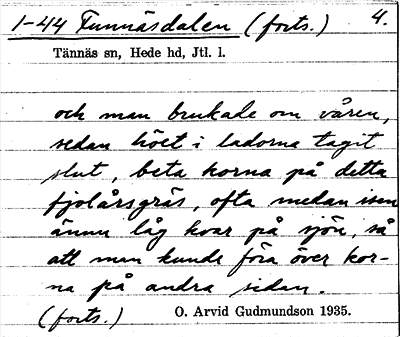 1-44 Tunnäsdalen (forts.) 4.
Tännäs sn, Hede hd, Jtl. l.
och man brukade om våren,
sedan höet i ladorna tagit
slut, beta korna på detta
fjolårsgräs, ofta medan isen
ännu låg kvar på sjön, så
att man kunde föra över kor-
na på andra sidan.
(forts.) O. Arvid Gudmundson 1935.